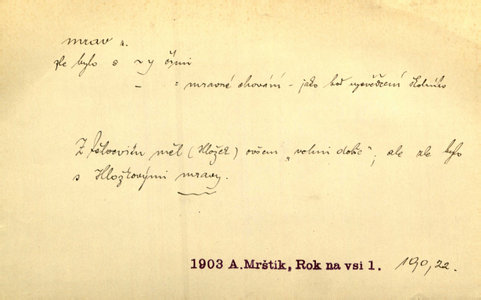 mrav m.
zle bylo s ~y čími
– " mravné chování – jako bod vysvědčení
Z tělocviku měl (Kložek) ovšem „velmi dobře"; ale zle bylo
s Kložkovými mravy.
1903 A. Mrštík, Rok na vsi 1. 190, 22.